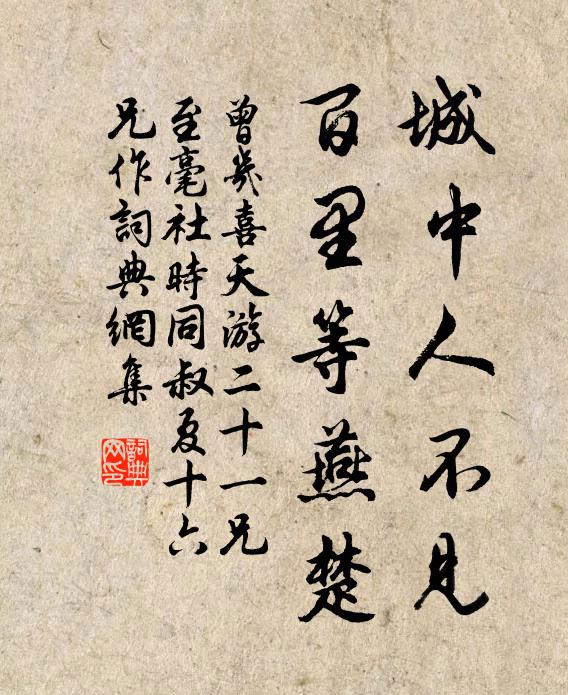 城中人不見
百里等燕楚
曾幾喜天游二十一兄
至毫社時同叔夏十六
兄作詞典網集
詞典網印